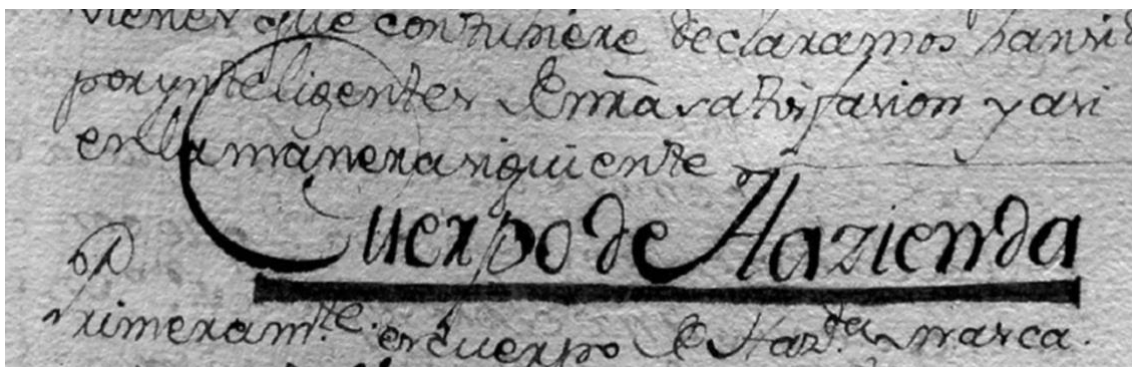 vienes que contubiere declaramos han
por ynteligentes de nrā satisfasion y asi
en la manera siguiente
Cuerpo de Hazienda
Primeramte. es cuerpo de Hazda marca.